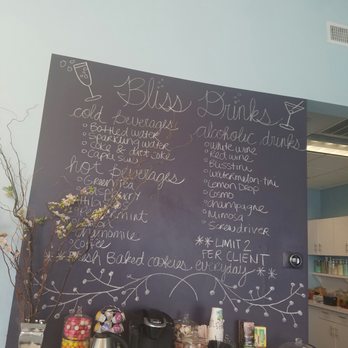 Bliss Drinks
cold beverages
Bottled water
Sparkling water
Coke & diet coke
Capri Sun
hot beverages
Green Tea
Earl
mint
chamomile
Coffee
alcoholic drinks
White wine
Red wine
Blisstini
Watermelon tini
Lemon Drop
Cosmo
champagne
Mimosa
Screwdriver
** LIMIT 2
PER CLIENT
everyday **
Fresh Baked cookies